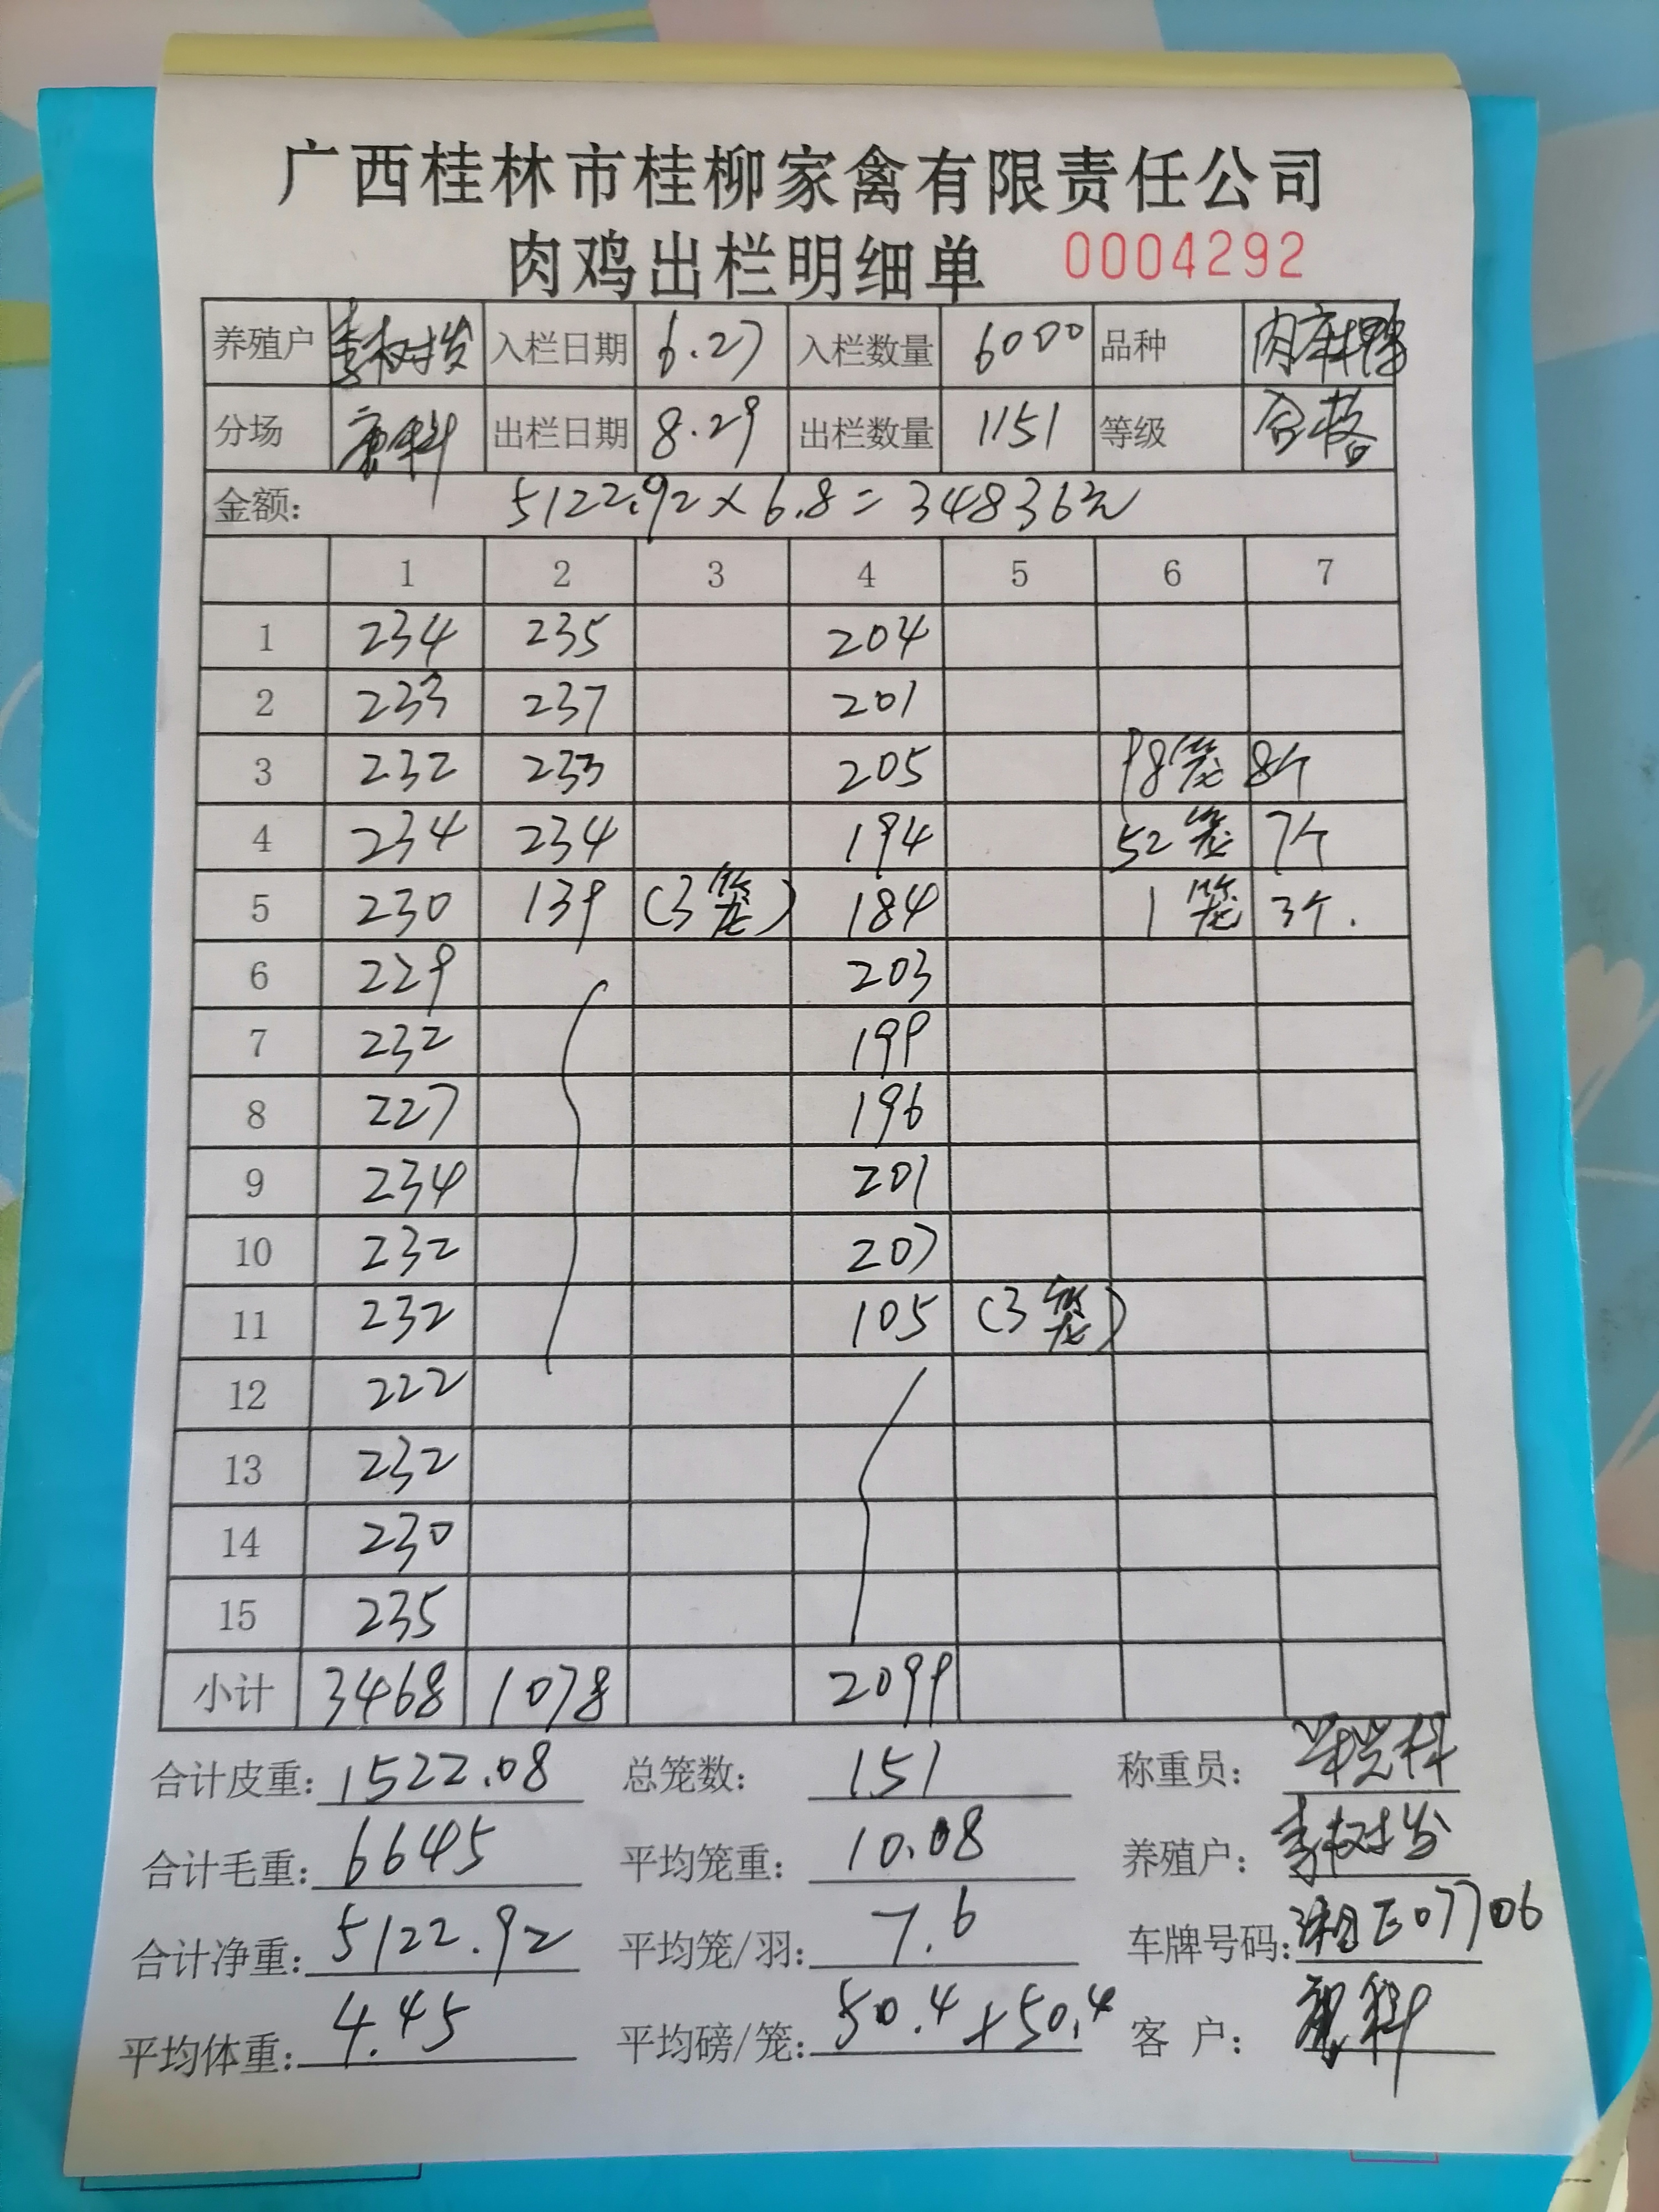 广西桂林市桂柳家禽有限责任公司
肉鸡出栏明细单 0004292
养殖户 李树发 入栏日期 6.27 入栏数量 6000 品种 肉麻鸭
分场 出栏日期 8.29 出栏数量 1151 等级 合格
金额: 5122.92×6.8=34836元
1 2 3 4 5 6 7
1 234 235 204
2 233 237 201
3 232 233 205 98笼 8个
4 234 234 194 52笼 7个
5 230 139 (3笼) 184 1笼 3个.
6 229 203
7 232 199
8 227 196
9 234 201
10 232 207
11 232 105 (3笼)
12 222
13 232
14 230
15 235
小计 3468 1078 2099
合计皮重: 1522.08 总笼数: 151 称重员:
合计毛重: 6645 平均笼重: 10.08 养殖户: 李树发
合计净重: 5122.92 平均笼/羽: 7.6 车牌号码: 湘E07706
平均体重: 4.45 平均磅/笼: 50.4+50.4 客 户: